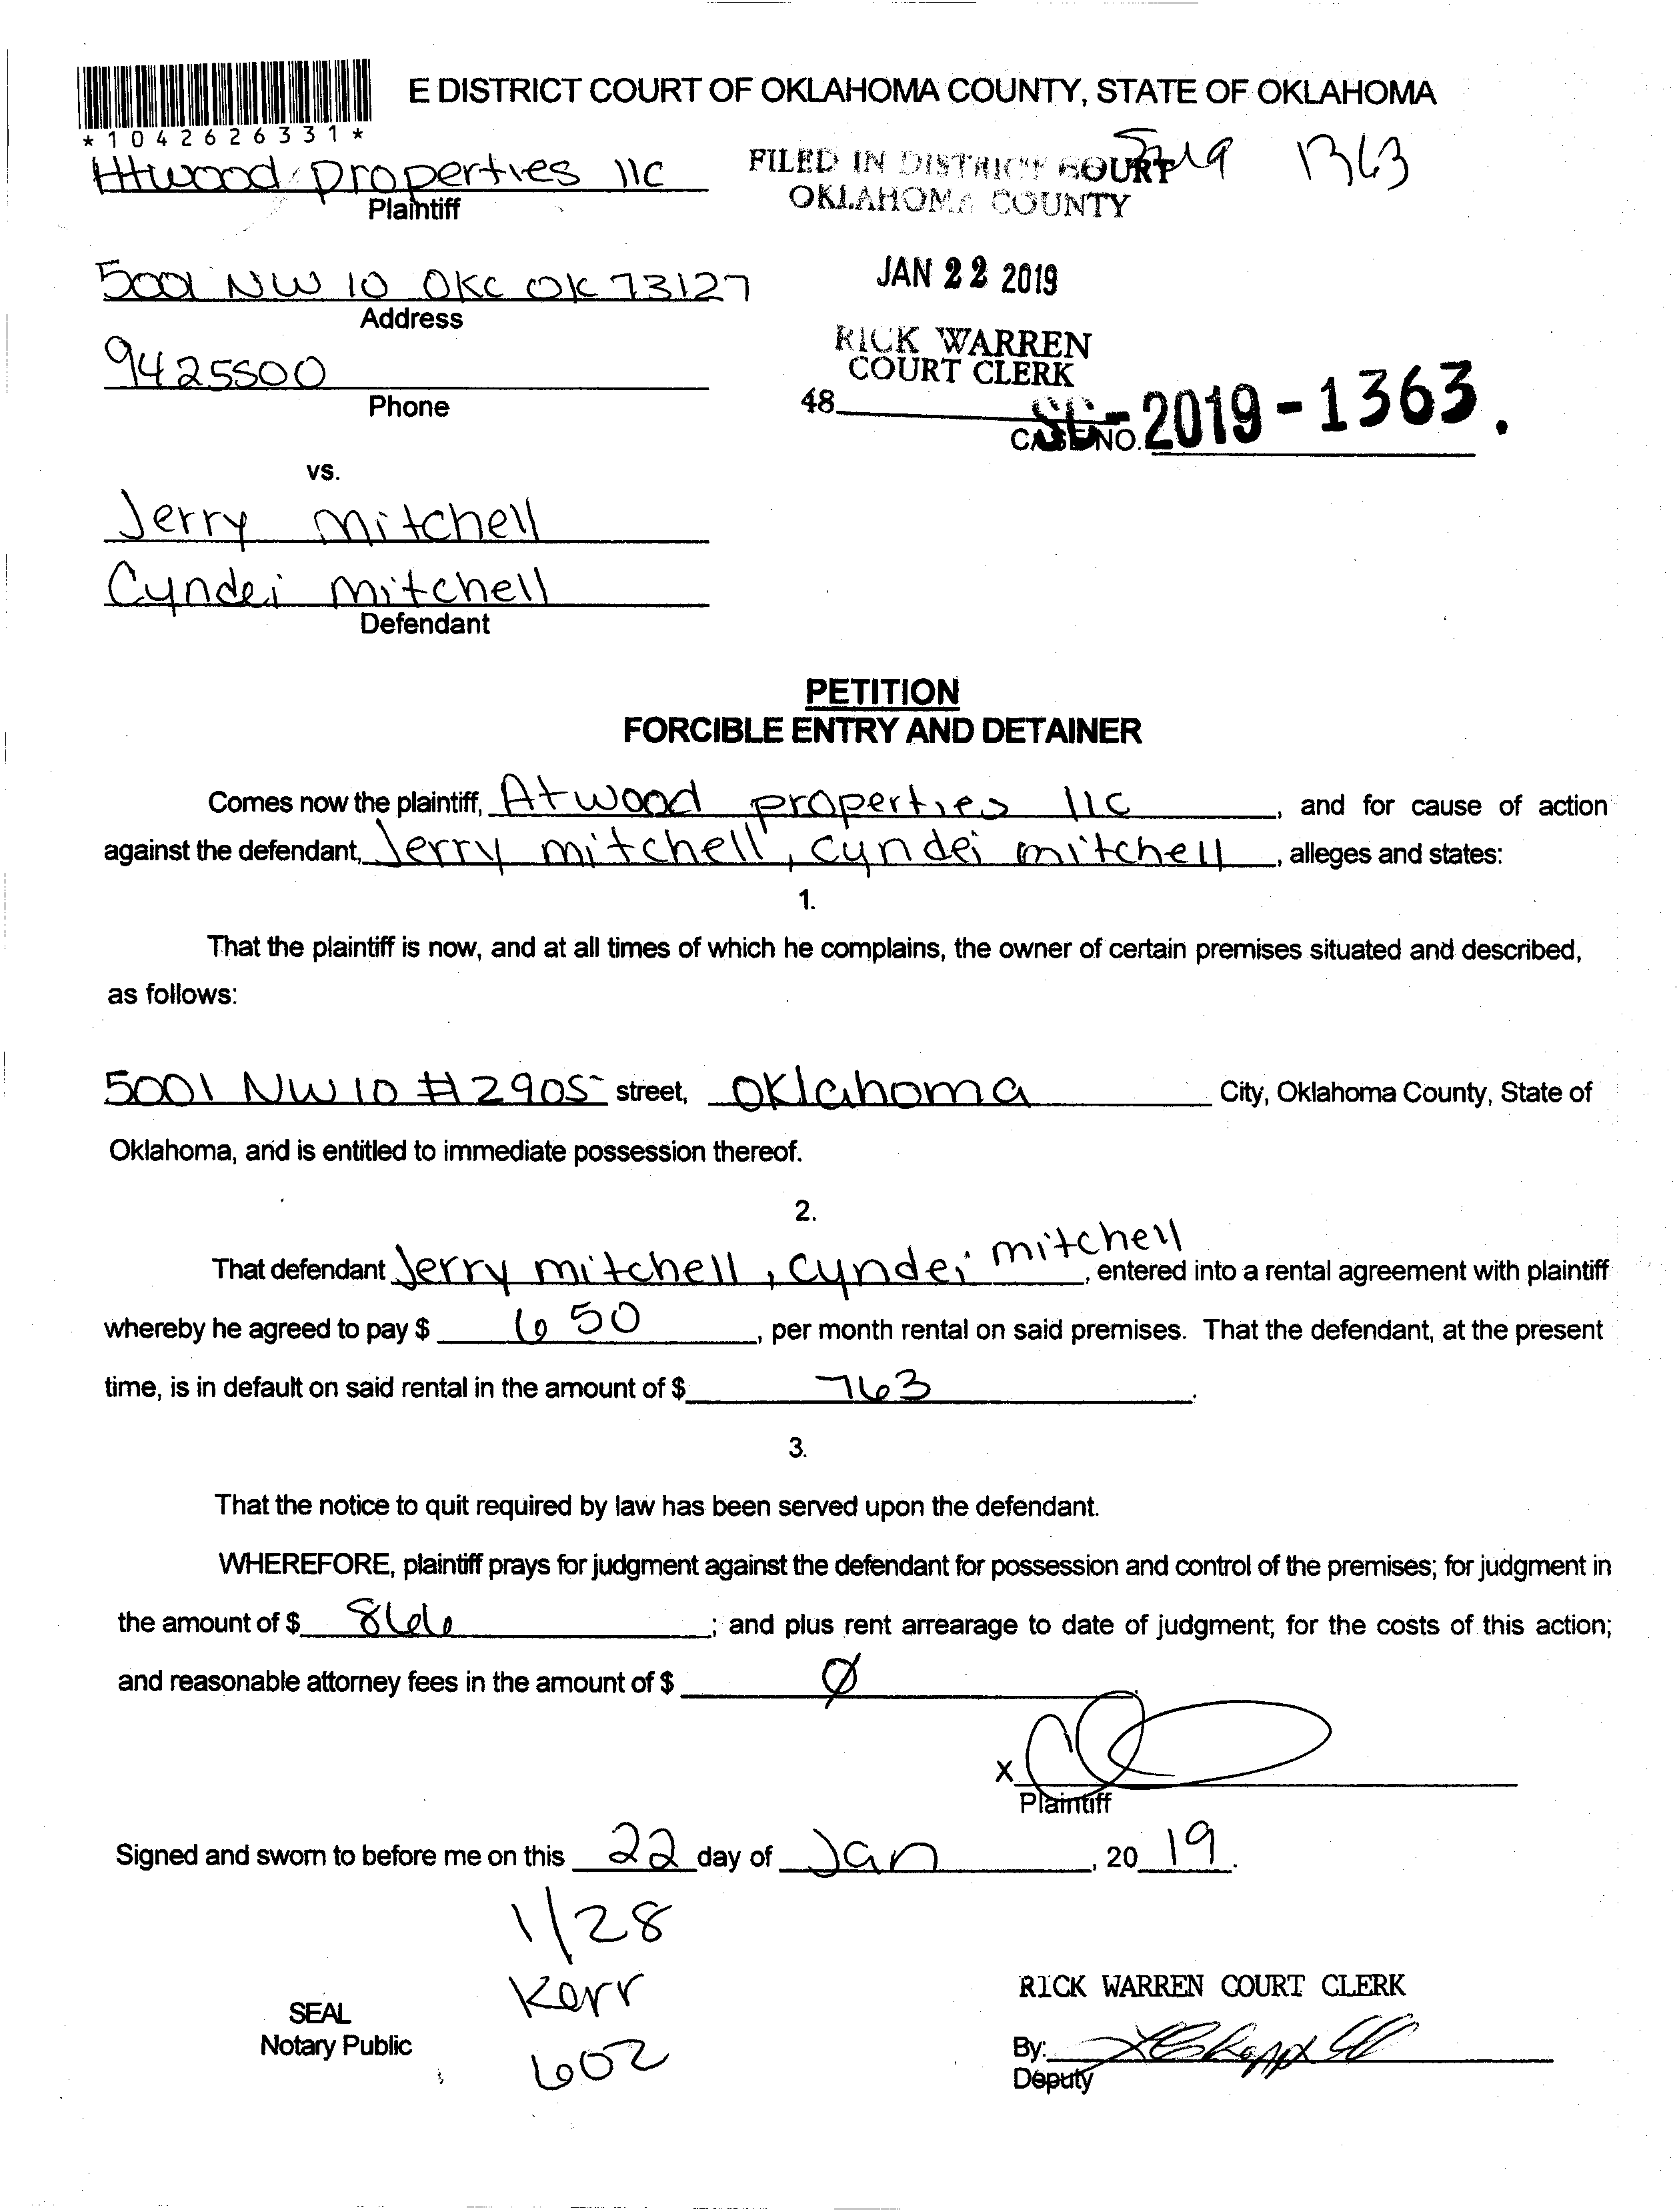 E DISTRICT COURT OF OKLAHOMA COUNTY, STATE OF OKLAHOMA
*1042626331*
Atwood properties llc
Plaintiff
FILED IN DISTRICT COURT
OKLAHOMA COUNTY
19 1363
5001 NW 10 OKC OK 73127
Address
JAN 22 2019
9425500
Phone
RICK WARREN
COURT CLERK
48
CASE NO. SC-2019-1363.
vs.
Jerry mitchell
Cyndei mitchell
Defendant
PETITION
FORCIBLE ENTRY AND DETAINER
Comes now the plaintiff, Atwood properties llc, and for cause of action
against the defendant, Jerry mitchell, cyndei mitchell, alleges and states:
1.
That the plaintiff is now, and at all times of which he complains, the owner of certain premises situated and described,
as follows:
5001 NW 10 #2905 street, Oklahoma City, Oklahoma County, State of
Oklahoma, and is entitled to immediate possession thereof.
2.
That defendant Jerry mitchell, cyndei mitchell, entered into a rental agreement with plaintiff
whereby he agreed to pay $ 650, per month rental on said premises. That the defendant, at the present
time, is in default on said rental in the amount of $ 763.
3.
That the notice to quit required by law has been served upon the defendant.
WHEREFORE, plaintiff prays for judgment against the defendant for possession and control of the premises; for judgment in
the amount of $ 866; and plus rent arrearage to date of judgment; for the costs of this action;
and reasonable attorney fees in the amount of $ Ø.
X
Plaintiff
Signed and sworn to before me on this 22 day of Jan, 20 19.
1/28
Kerr
602
SEAL
Notary Public
RICK WARREN COURT CLERK
By:
Deputy